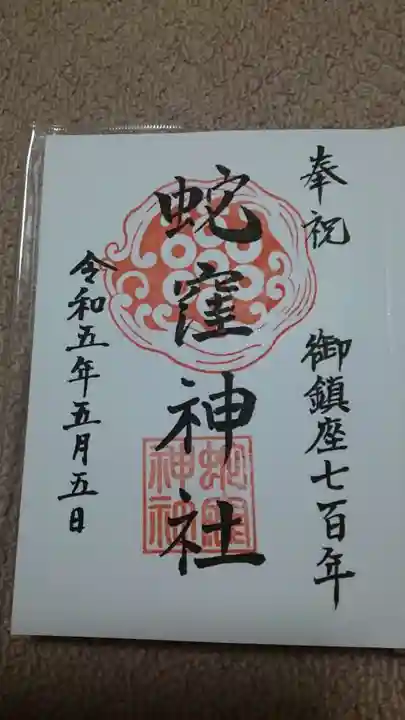 奉祝 御鎮座七百年
蛇窪神社
蛇窪神社
令和五年五月五日